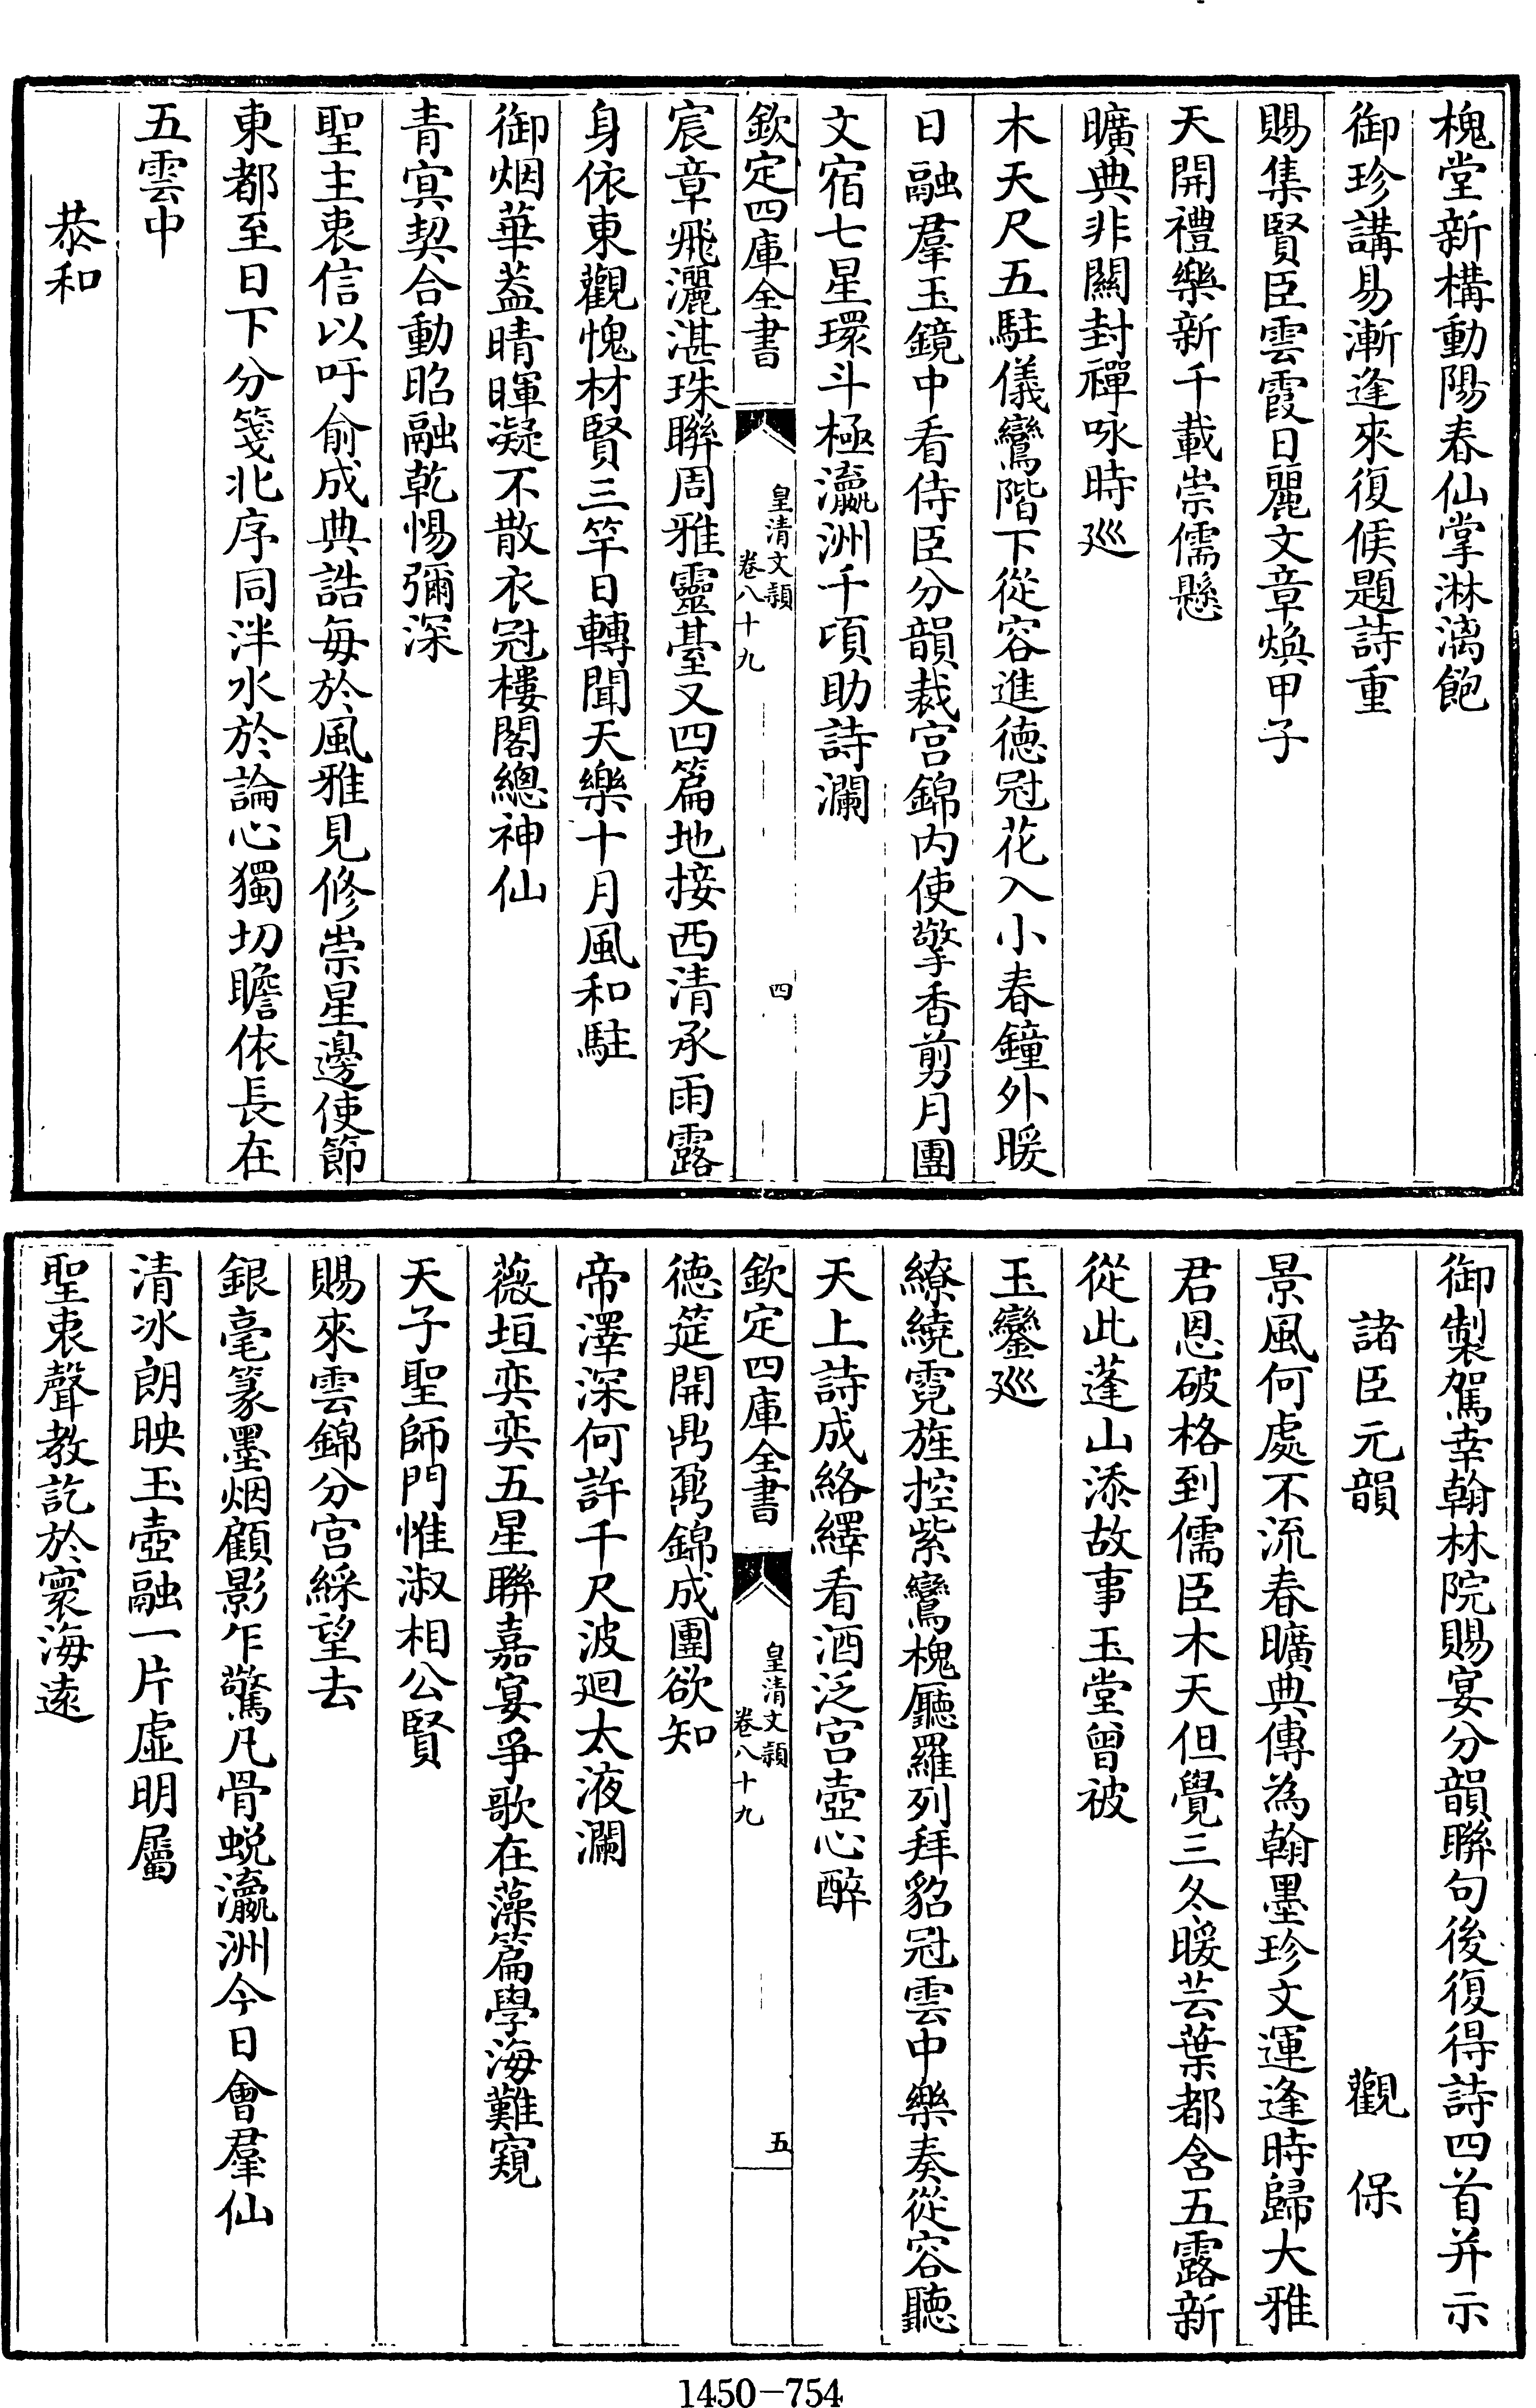 槐堂新構動陽春仙掌淋漓飽
御珍講易漸逢來復候題詩重
賜集賢臣雲霞日麗文章煥甲子
天開禮樂新千載崇儒懸
曠典非關封禪咏時廵
木天尺五駐儀鸞階下從容進徳冠花入小春鐘外暖
日融羣玉鏡中看侍臣分韻裁宫錦内使擎香剪月團
文宿七星環斗極瀛洲千頃助詩瀾
欽定四庫全書
皇清文穎
卷八十九
四
宸章飛灑湛珠聯周雅靈臺又四篇地接西清承雨露
身依東觀愧材賢三竿日轉聞天樂十月風和駐
御烟華葢晴暉凝不散衣冠樓閣總神仙
青㝠契合動昭融乾惕彌深
聖主衷信以吁俞成典誥每於風雅見修崇星邊使節
東都至日下分箋北序同泮水於論心獨切瞻依長在
五雲中
恭和
御製駕幸翰林院賜宴分韻聯句後復得詩四首并示
諸臣元韻
觀保
景風何處不流春曠典傳為翰墨珍文運逢時歸大雅
君恩破格到儒臣木天但覺三冬暖芸葉都含五露新
從此蓬山添故事玉堂曾被
玉鑾廵
繚繞霓旌控紫鸞槐廳羅列拜貂冠雲中樂奏從容聽
天上詩成絡繹看酒泛宫壺心醉
欽定四庫全書
皇清文穎
卷八十九
五
徳筵開鼎鼐錦成團欲知
帝澤深何許千尺波廻太液瀾
薇垣奕奕五星聯嘉宴爭歌在藻篇學海難窺
天子聖師門惟淑相公賢
賜來雲錦分宫綵望去
銀毫篆墨烟顧影乍驚凡骨蜕瀛洲今日會羣仙
清冰朗映玉壺融一片虚明屬
聖衷聲教訖於寰海遠
1450-754